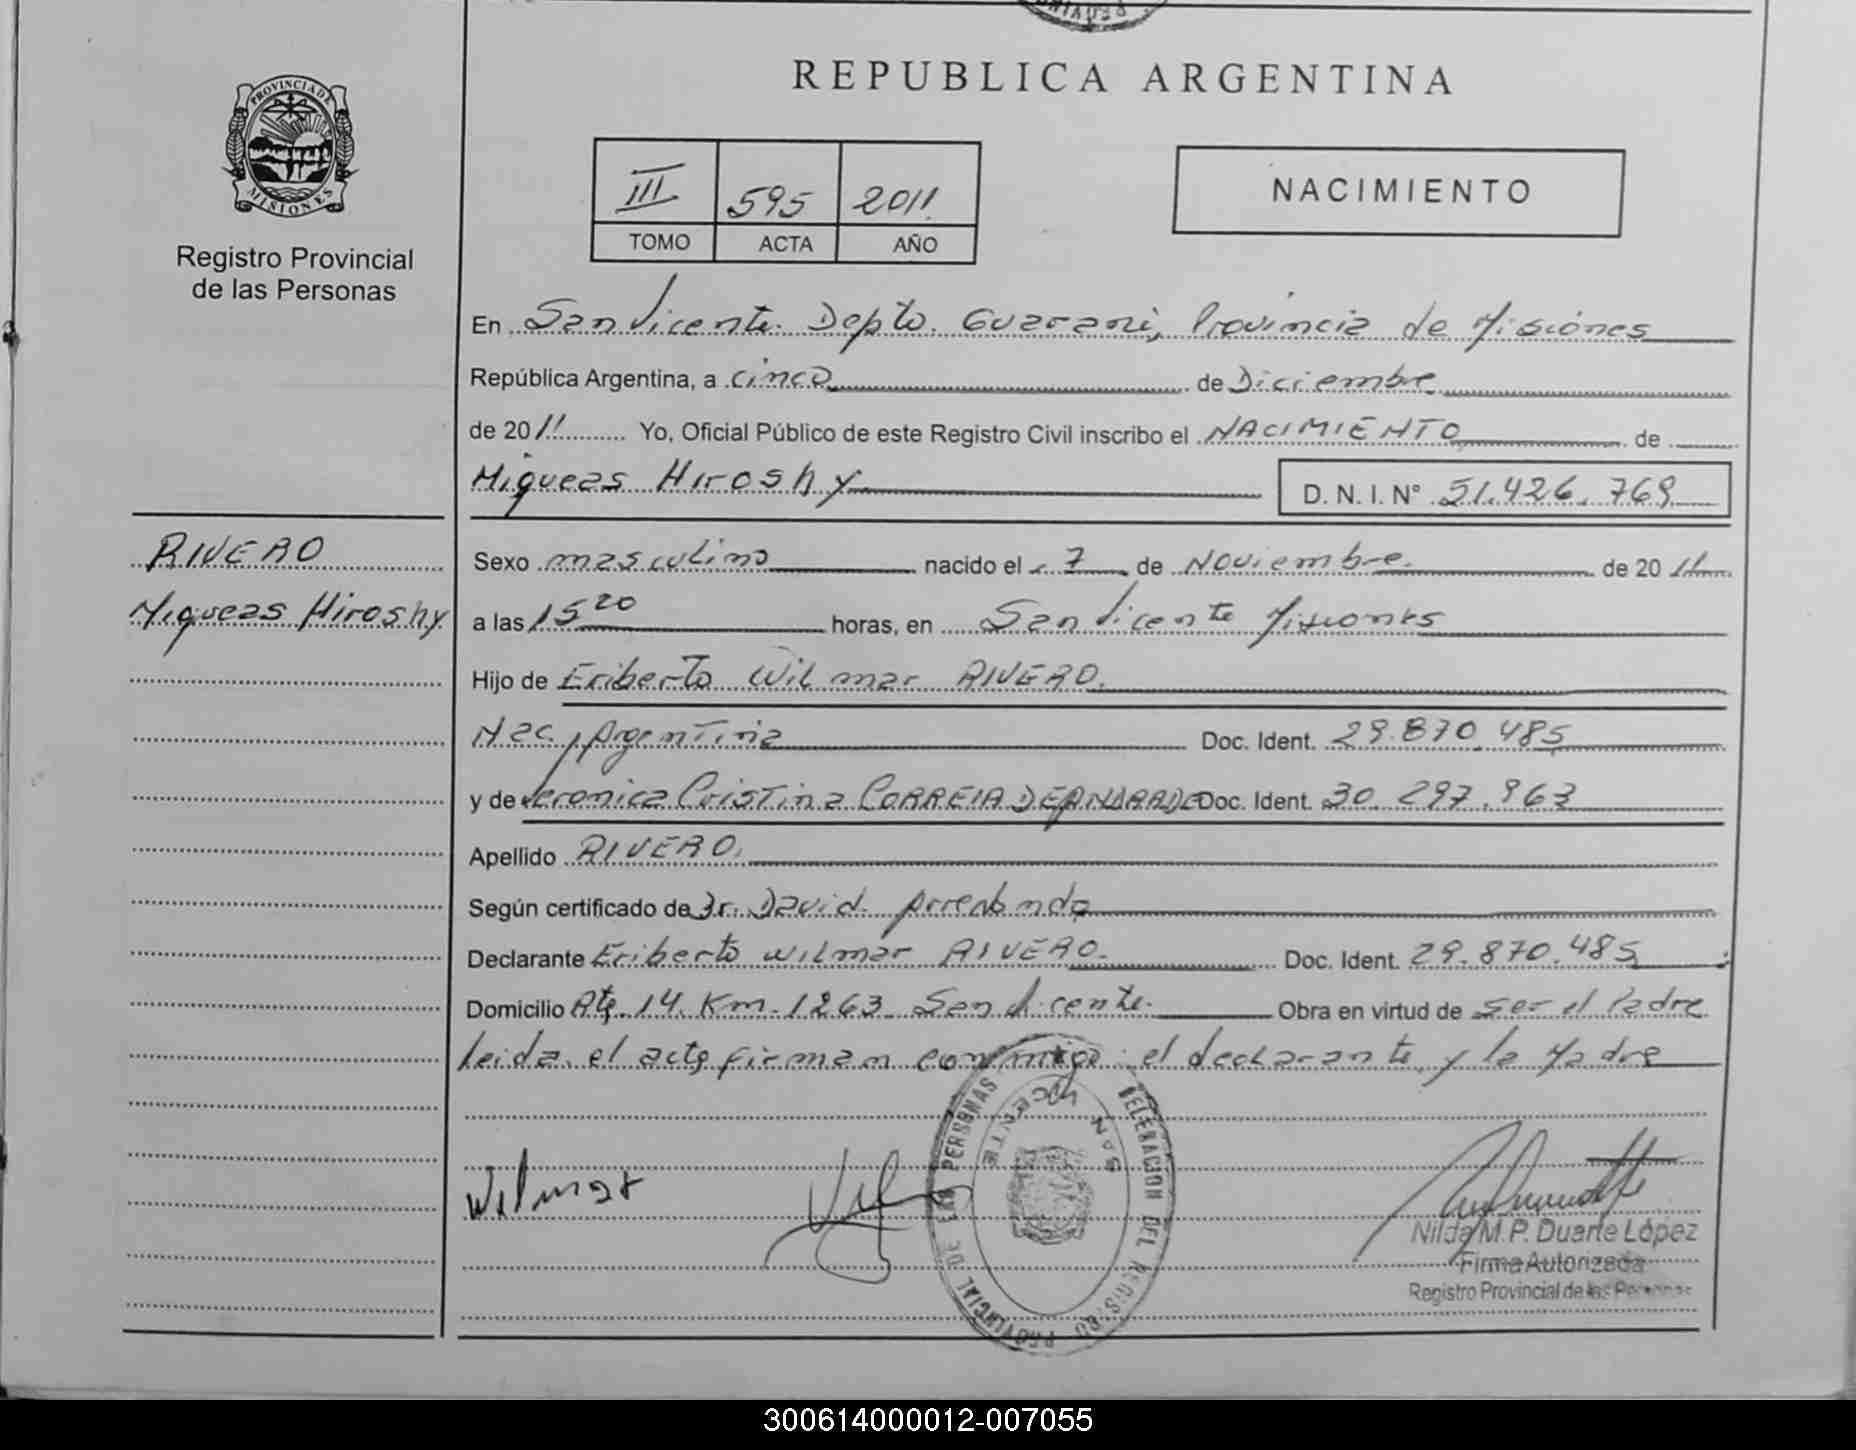 REPUBLICA ARGENTINA
PROVINCIA DE
MISIONES
Registro Provincial
de las Personas
III 595 2011
TOMO ACTA AÑO
NACIMIENTO
En San Vicente Depto. Guarani, Provincia de Misiones
República Argentina, a cinco de Diciembre
de 2011 Yo, Oficial Público de este Registro Civil inscribo el NACIMIENTO de
Miqueas Hiroshy D. N. I. N° 51.426.769
RIVERO
Miqueas Hiroshy
Sexo masculino nacido el 7 de Noviembre de 2011
a las 15 20 horas, en San Vicente Misiones
Hijo de Eriberto Wilmar RIVERO.
Nac. Argentina Doc. Ident. 29.870.485
y de Veronica Cristina CORREIA DE ANDRADE Doc. Ident. 30.297.963
Apellido RIVERO.
Según certificado de Dr. David Arrebondo
Declarante Eriberto Wilmar RIVERO. Doc. Ident. 29.870.485
Domicilio Rta. 14. Km. 1263. San Vicente. Obra en virtud de ser el Padre
leida el acta firman conmigo: el declarante y la Madre
Wilmar
DELEGACION DEL REGISTRO PROVINCIAL DE LAS PERSONAS
SAN VICENTE
Nilda M. P. Duarte López
Firma Autorizada
Registro Provincial de las Personas
300614000012-007055